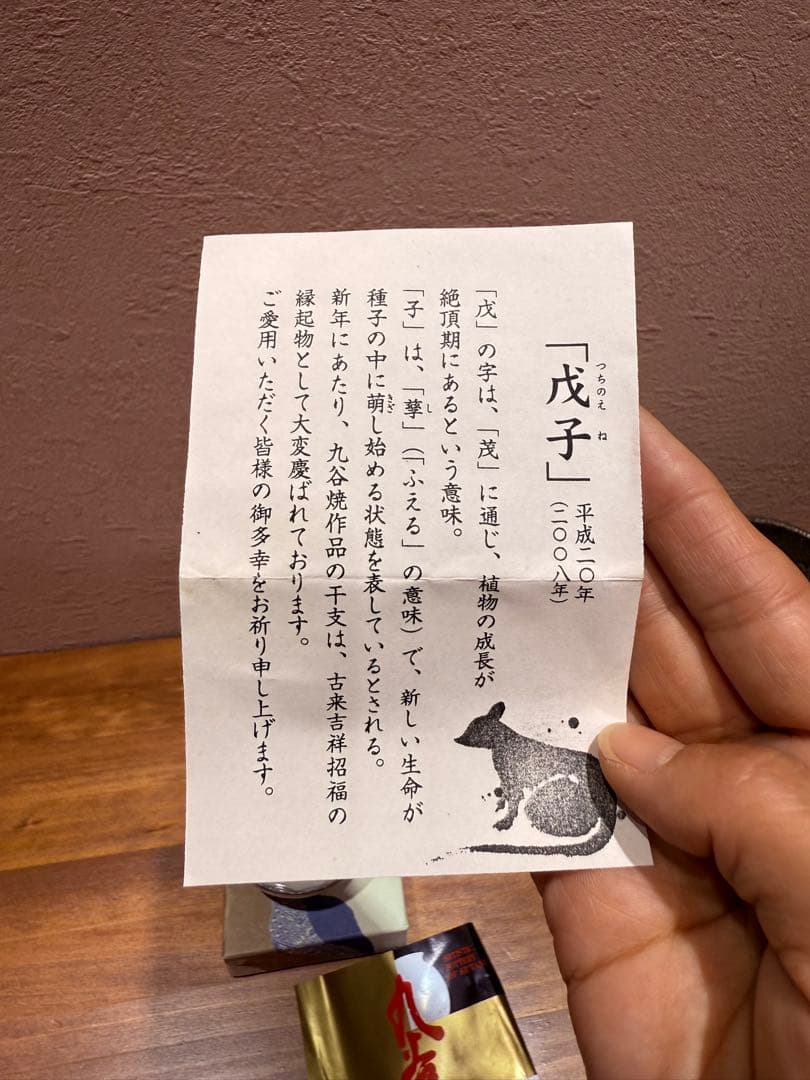 「戊子」
つちのえ ね
平成二〇年
(二〇〇八年)
「戊」の字は、「茂」に通じ、植物の成長が
絶頂期にあるという意味。
「子」は、「孳」(「ふえる」の意味)で、新しい生命が
し
種子の中に萌し始める状態を表しているとされる。
きざ
新年にあたり、九谷焼作品の干支は、古来吉祥招福の
縁起物として大変慶ばれております。
ご愛用いただく皆様の御多幸をお祈り申し上げます。
九谷